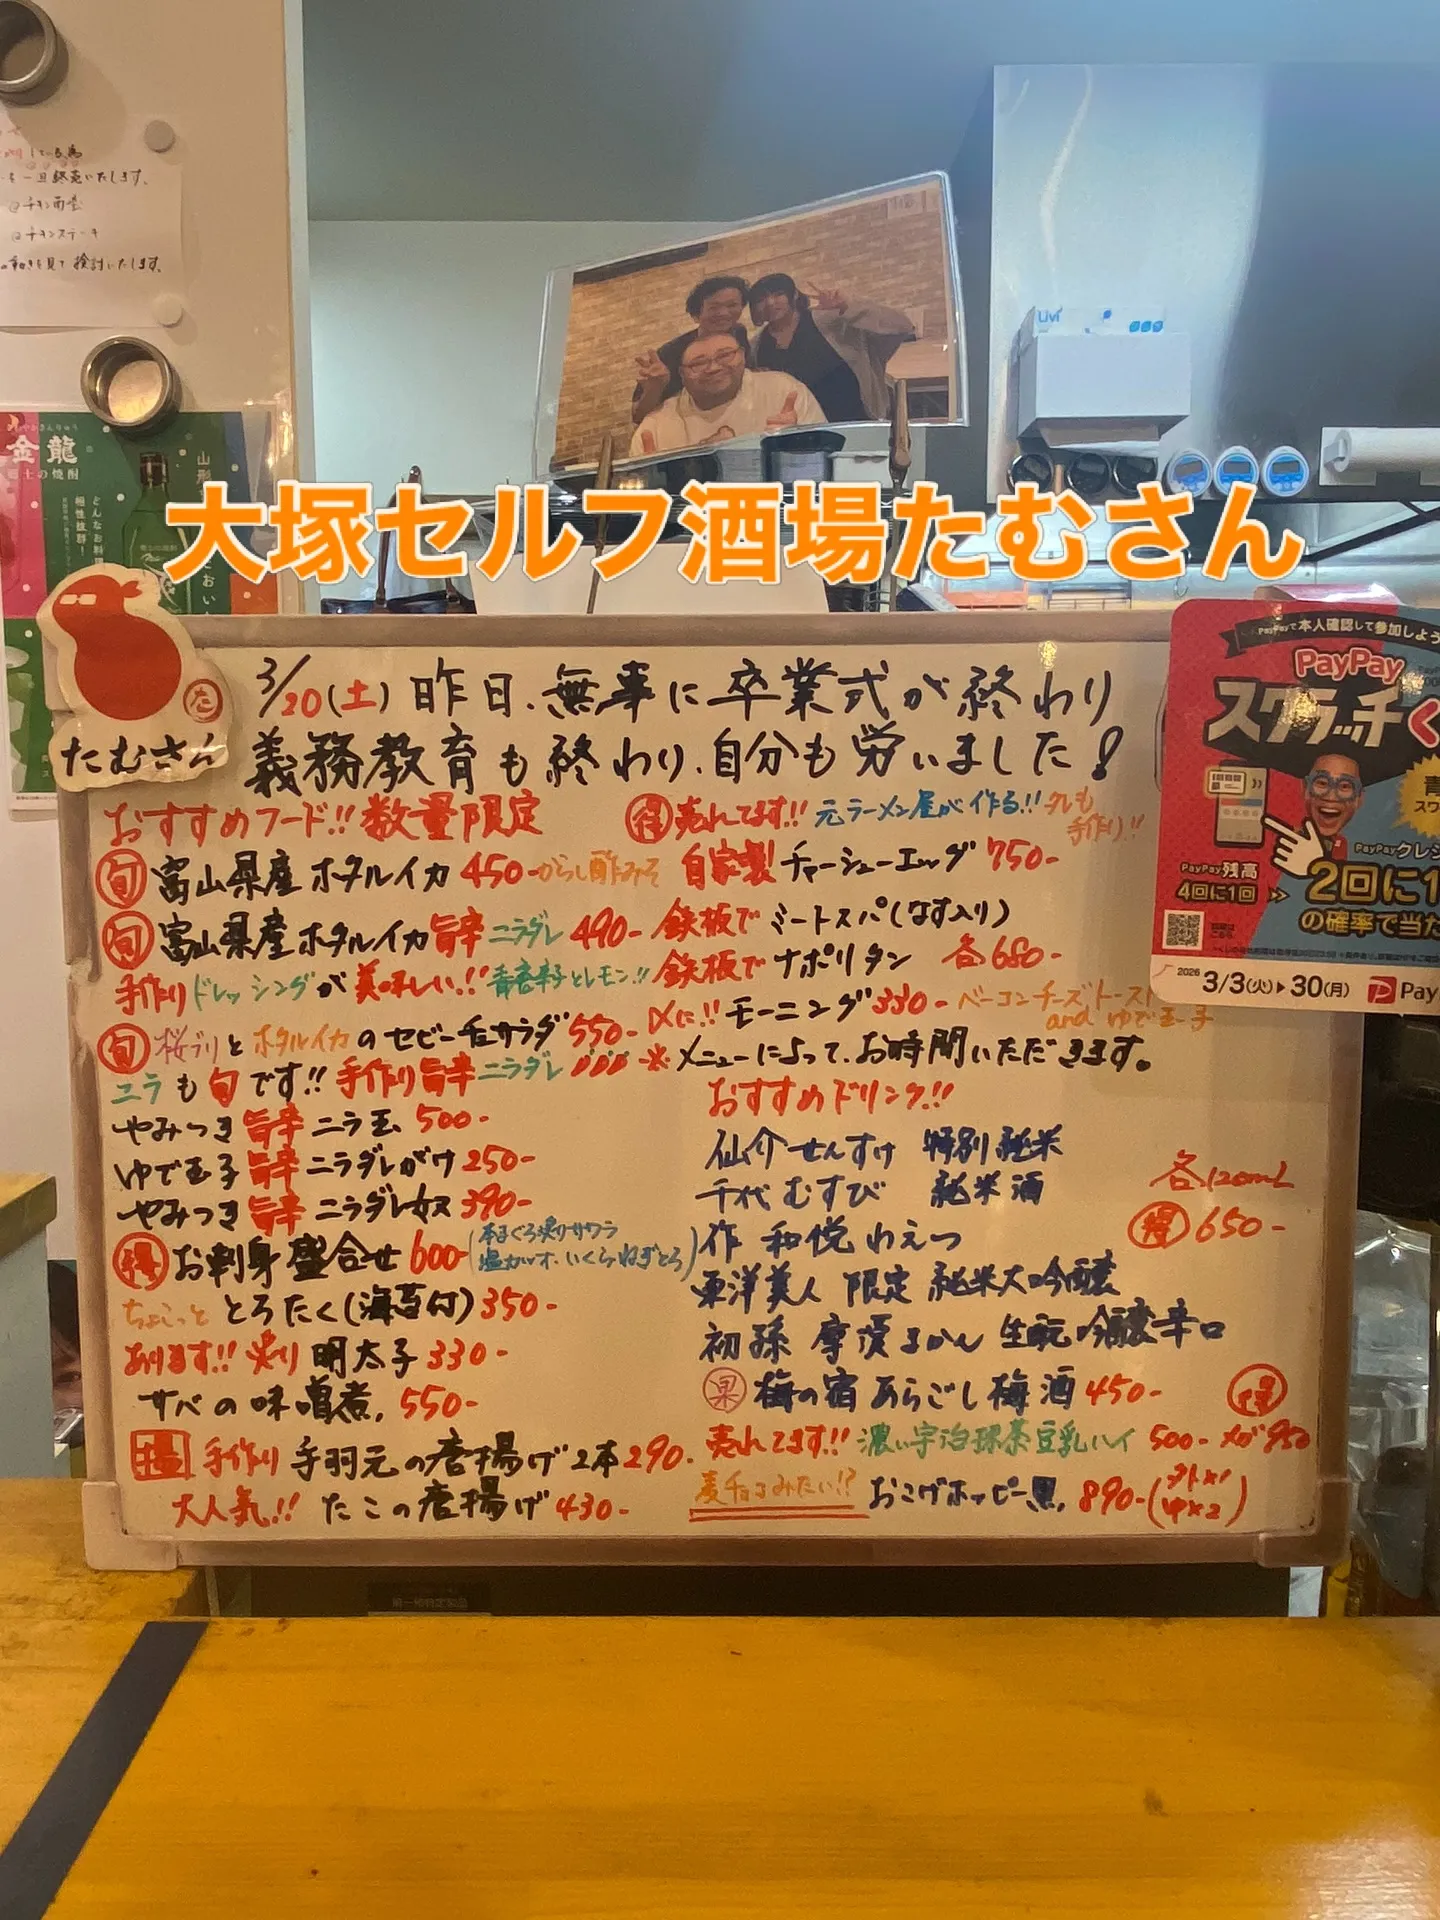 している為
を一旦終売いたします。
@チキン南蛮
@チキンステーキ
の動きを見て検討いたします。
金龍
郷土の焼酎
山形
どんなお料理
相性抜群!
大塚セルフ酒場たむさん
た
たむさん
3/20(土)昨日、無事に卒業式が終わり
義務教育も終わり、自分も労いました!
おすすめフード!!数量限定
旬 富山県産ホタルイカ 450- からし酢みそ
旬 富山県産ホタルイカ旨辛ニラダレ 490-
手作りドレッシングが美味しい!!青唐辛子とレモン!!
旬 桜ブリとホタルイカのセビーチェサラダ 550-
ニラも旬です!!手作り旨辛ニラダレ
やみつき旨辛ニラ玉 500-
ゆで玉子旨辛ニラダレがけ 250-
やみつき旨辛ニラダレ奴 390-
得 お刺身盛合せ 600- (本まぐろ炙りサワラ
塩カツオ・いくら・ねぎとろ)
ちょこっと とろたく(海苔付) 350-
あります!! 炙り明太子 330-
サバの味噌煮 550-
揚 手作り 手羽元の唐揚げ 2本 290-
大人気!! たこの唐揚げ 430-
得 売れてます!! 元ラーメン屋が作る!! タレも
手作り!!
自家製チャーシューエッグ 750-
鉄板でミートスパ(なす入り)
鉄板でナポリタン 各680-
〆に!!モーニング 330- ベーコンチーズトースト
and ゆで玉子
※メニューによって、お時間いただきます。
おすすめドリンク!!
仙介 せんすけ 特別純米
千代むすび 純米酒
作 和悦 わえつ
東洋美人 限定 純米大吟醸
初孫 摩訶まかん 生酛吟醸辛口
各120mL
得 650-
果 梅の宿あらごし梅酒 450-
得
売れてます!! 濃い宇治抹茶豆乳ハイ 500- メガ950
麦チョコみたい!? おこげホッピー黒 890- (外×1
中×2)
PayPayで本人確認して参加しよう
PayPay
スクラッチく
PayPay残高
4回に1回
PayPayクレジ
2回に1
の確率で当た
2026
3/3(火)▶30(月)
Pay